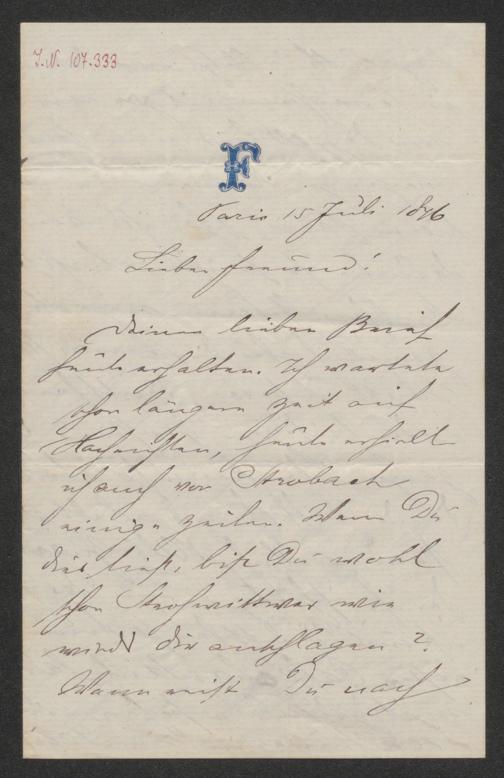 J.N. 107.333
F
Paris 15 Juli 1896
Lieber Freund!
Deinen lieben Brief
heute erhalten. Ich wartete
schon längere Zeit auf
Nachrichten, heute erhielt
ich auch von Strobach
einige Zeilen. Wenn Du
dies liest, bist Du wohl
schon Strohwittwer wie
wird dir anschlagen?
Wann reist Du nach